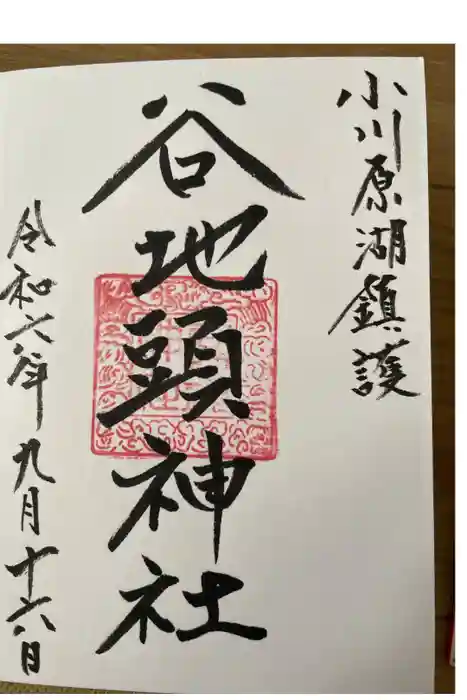 小川原湖鎮護
谷地頭神社
令和六年九月十六日